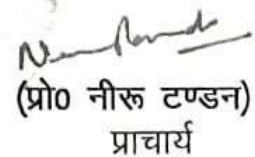 (प्रो0 नीरू टण्डन)
प्राचार्य